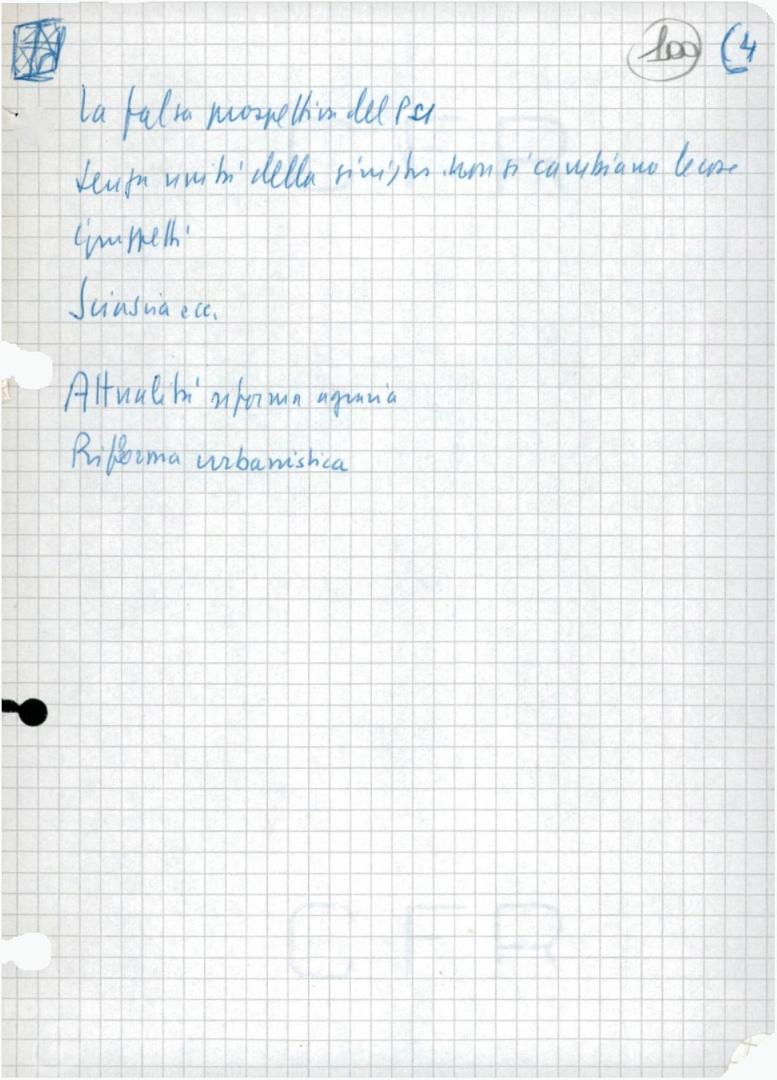 100 (4
La falsa prospettiva del Psi
senza unità della sinistra non si cambiano le cose
i gruppetti
Sciascia ecc.
Attualità riforma agraria
Riforma urbanistica
CFR